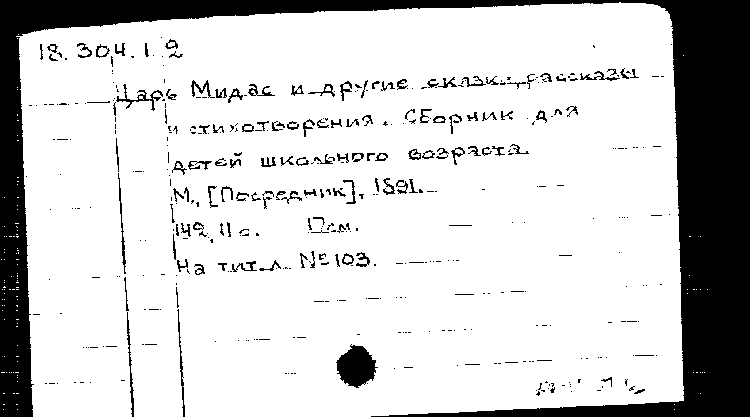 18.304.1.2
Царь Мидас и другие сказки, рассказы
и стихотворения. Сборник для
детей школьного возраста.
М., [Посредник], 1891.
149, 11 с. 17см.
На тит. л. № 103.